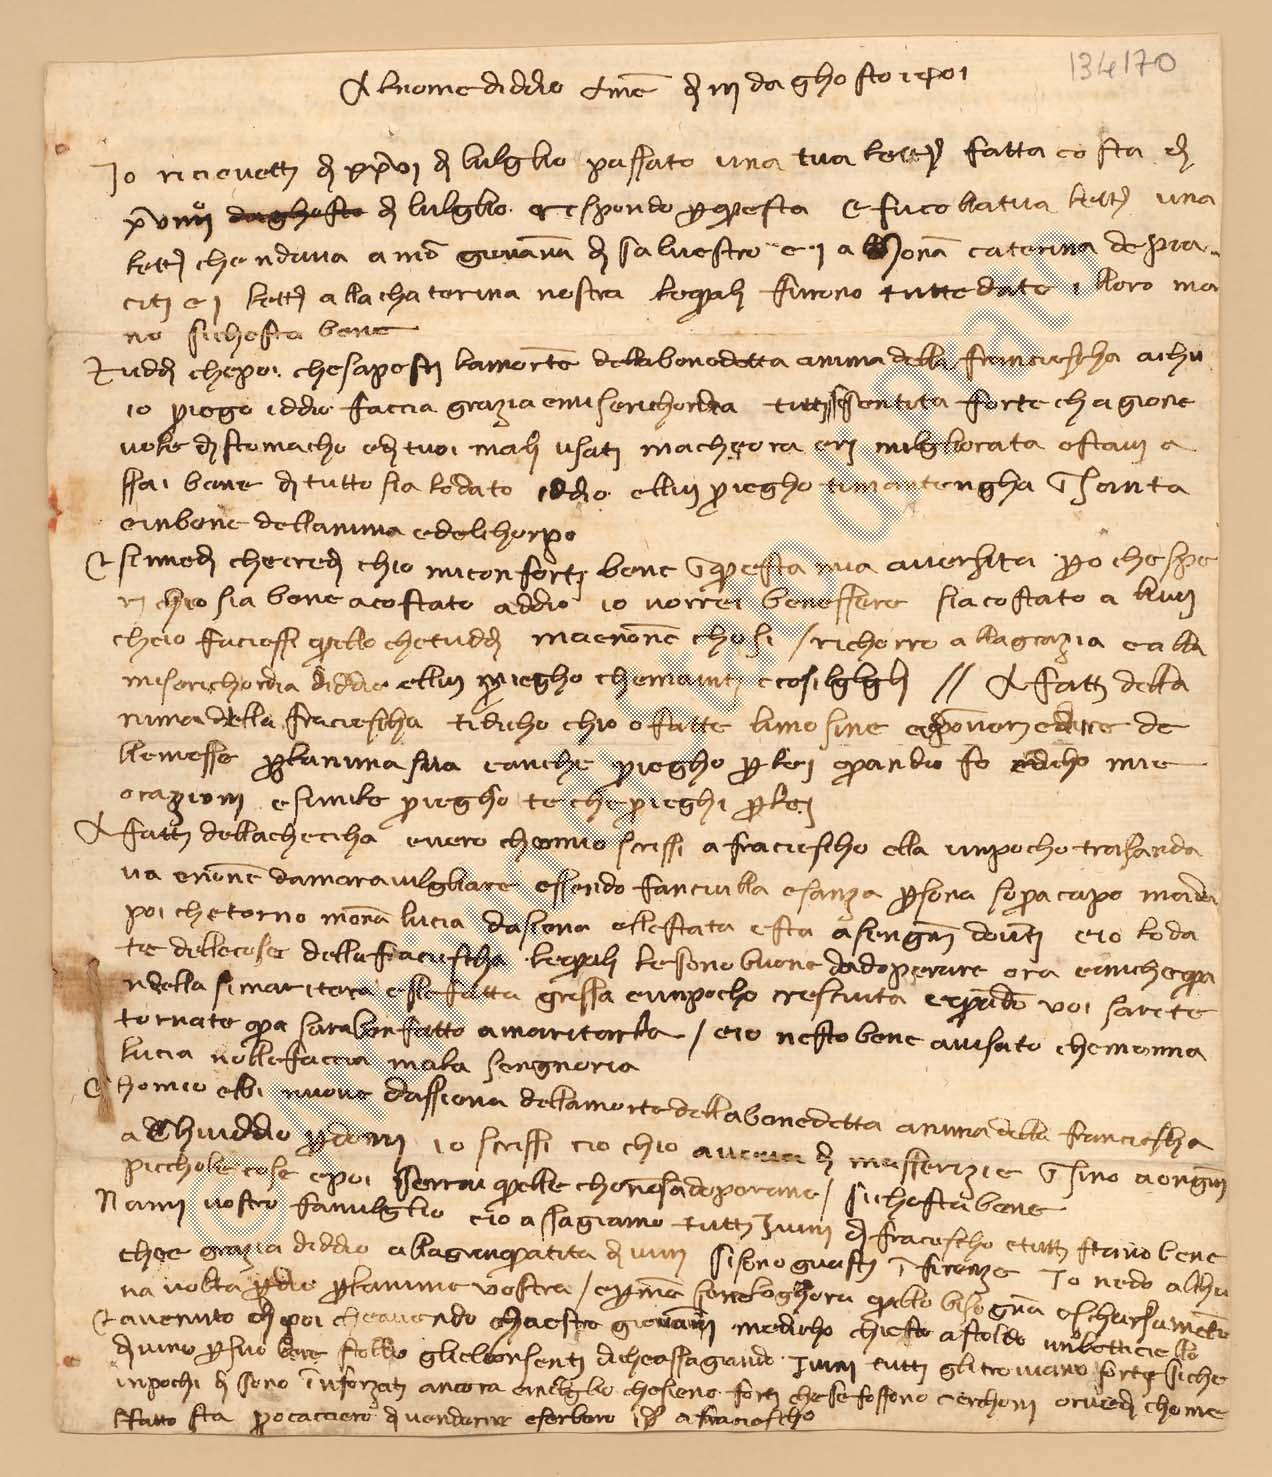 134170
Al nome di ddio amē dì iij da ghosto 1401
Io ricievetti dì xxvi di lulglio passato una tua letta fatta costà dì
di lulglio rispondo p questa e fu co lla tua letta una
letta che ndava a mō giovāni di salvestro e j a monā caterina de pra
citi e j letta alla chaterina nostra le quali furono tutte date i lloro ma
no siche sta bene
Tu ddi che poi che sapesti la morte della benedetta anima della franciescha a chu
io priego iddio faccia grazia e miserichordia tutti se sentita forte chagione
vole di stomacho e di tuoi mali usati ma che ora eri milgliorata e stavi a
ssai bene di tutto sia lodato iddio e llui priegho ti mantengha ī santa
e in bene dell anima e del chorpo
E si mi di che credi ch io mi conforti bene ī questa mia aversita p o che spe
ri ch io sia bene acostato a ddio io vorrei bene essere sì acostato a llui
che io faciessi quello che tu ddi ma e none chosi / richorro alla grazia e alla
miserichordia di ddio e llui priegho che m aiuti e cosi lgli // A fatti della
nima della franciescha ti dicho ch io o fatte limosine e a poveri e dire de
lle messe p l anima sua e anche priegho p lei quando fo e dicho mie
orazioni e simile priegho te che prieghi p lei
A fatti della checcha e vero che mio scrissi a franciescho ella un pocho trasanda
va e none da maravilgliare essendo fanciulla e sanza psona sopra capo ma da
poi che torno monā lucia da siena ell e stata e sta a sengni dovuti e io lo da
te delle cose della franciescha le quali le sono buone da doperare ora e anche qua
ndella si maritera e s e fatta grossa e un pocho cresciuta e quādo voi sarete
tornate qua sara ben fatto a maritarla / e io ne sto bene avisato che monna
lucia nolle faccia mala sengnoria
E chome ebbi nuove da ssiena della morte della benedetta anima della franciescha
a chui ddio pdoni io scrissi cio ch io aveva di masserizie ī sino a ongni
picchole cose e poi serrai quelle che non s adoperano / siche sta bene
N anni vostro familglio e io assagiamo tutti i vini di franciescho e tutti stāno bene
che e grazia di ddio alla gran quatita di vini si sono guasti ī firenze Io ne do alchu
na volta p dio p l anime vostre / e p mē sene loghora quello bisogna e scharsamēte
E avenuto dì poi che avendo maestro giovanni medicho chiesto a stoldo uno botticiello
di vino p suo bere stoldo gliele consenti di che assagiando i vini tutti gli trovamo forte siche
in pochi dì sono īnforzati ancora e melglio che sieno forti che se fossono cerchoni or vedi chome
fatto sta procacciero di venderne e serbero i a franciescho